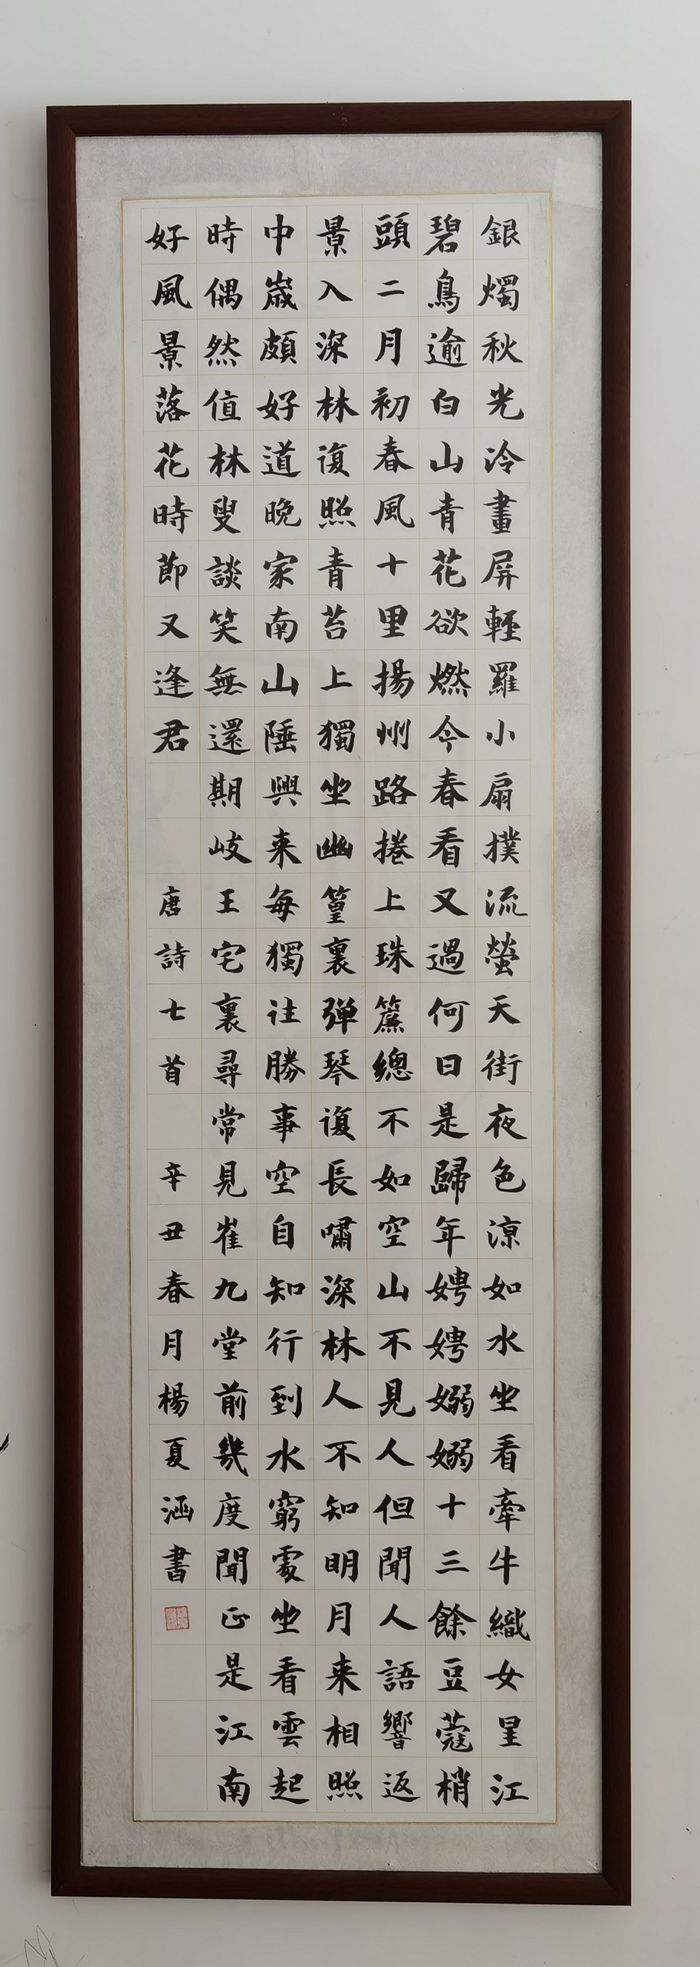 銀燭秋光冷畫屏輕羅小扇撲流螢天街夜色涼如水坐看牽牛織女星江
碧鳥逾白山青花欲燃今春看又過何日是歸年娉娉嫋嫋十三餘豆蔻梢
頭二月初春風十里揚州路捲上珠簾總不如空山不見人但聞人語響返
景入深林復照青苔上獨坐幽篁裏彈琴復長嘯深林人不知明月来相照
中歲頗好道晚家南山陲興来每獨往勝事空自知行到水窮處坐看雲起
時偶然值林叟談笑無還期岐王宅裏尋常見崔九堂前幾度聞正是江南
好風景落花時節又逢君 唐詩七首 辛丑春月楊夏涵書